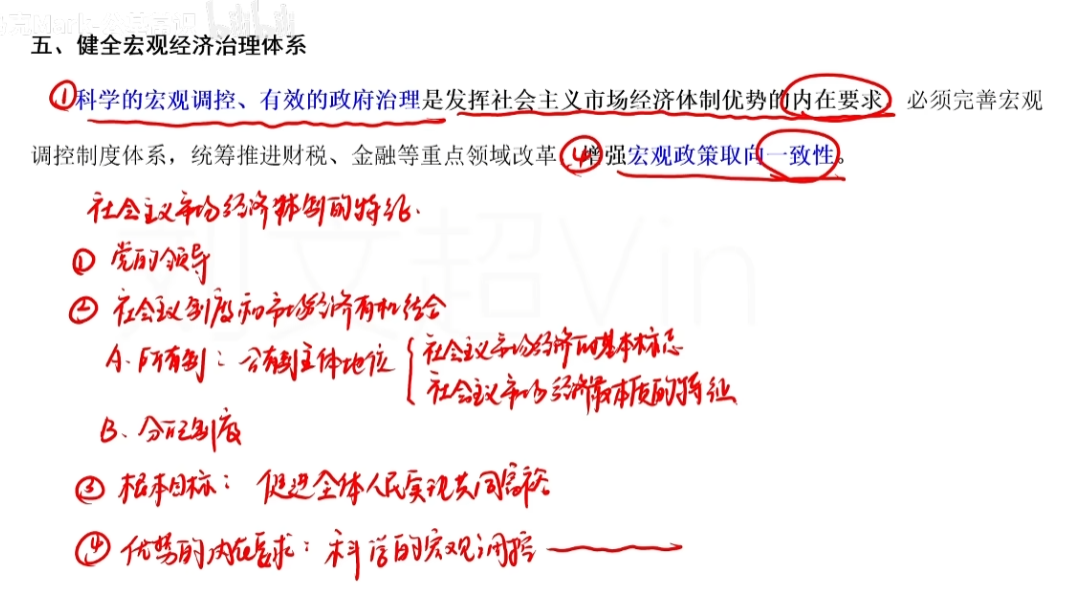 五、健全宏观经济治理体系
①科学的宏观调控、有效的政府治理是发挥社会主义市场经济体制优势的内在要求 必须完善宏观
调控制度体系，统筹推进财税、金融等重点领域改革 ④增强宏观政策取向一致性。
社会主义市场经济体制的特征.
① 党的领导
② 社会主义制度和市场经济有机结合
A. 所有制：公有制主体地位
社会主义市场经济的基本标志
社会主义市场经济最本质的特征
B、分配制度
③ 根本目标：促进全体人民实现共同富裕
④ 优势的内在要求：科学的宏观调控
刘文超Vin